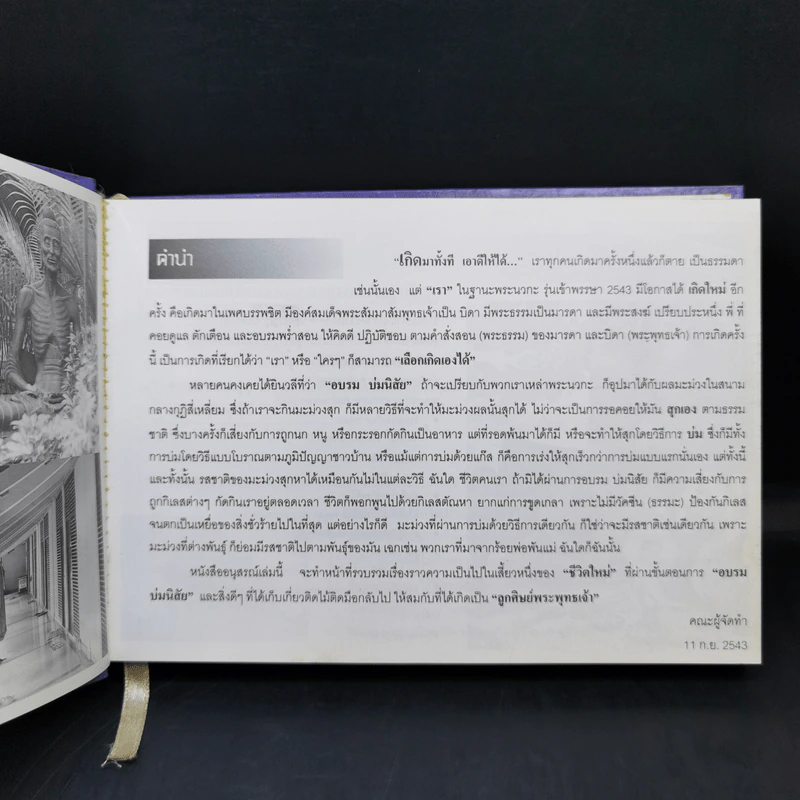 คำนำ
“เกิดมาทั้งที เอาดีให้ได้...” เราทุกคนเกิดมาครั้งหนึ่งแล้วก็ตาย เป็นธรรมดา
เช่นนั้นเอง แต่ “เรา” ในฐานะพระนวกะ รุ่นเข้าพรรษา 2543 มีโอกาสได้ เกิดใหม่ อีก
ครั้ง คือเกิดมาในเพศบรรพชิต มีองค์สมเด็จพระสัมมาสัมพุทธเจ้าเป็น บิดา มีพระธรรมเป็นมารดา และมีพระสงฆ์ เปรียบประหนึ่ง พี่ ที่
คอยดูแล ตักเตือน และอบรมพร่ำสอน ให้คิดดี ปฏิบัติชอบ ตามคำสั่งสอน (พระธรรม) ของมารดา และบิดา (พระพุทธเจ้า) การเกิดครั้ง
นี้ เป็นการเกิดที่เรียกได้ว่า “เรา” หรือ “ใครๆ” ก็สามารถ “เลือกเกิดเองได้”
หลายคนคงเคยได้ยินวลีที่ว่า “อบรม บ่มนิสัย” ถ้าจะเปรียบกับพวกเราเหล่าพระนวกะ ก็อุปมาได้กับผลมะม่วงในสนาม
กลางกุฏิสี่เหลี่ยม ซึ่งถ้าเราจะกินมะม่วงสุก ก็มีหลายวิธีที่จะทำให้มะม่วงผลนั้นสุกได้ ไม่ว่าจะเป็นการรอคอยให้มัน สุกเอง ตามธรรม
ชาติ ซึ่งบางครั้งก็เสี่ยงกับการถูกนก หนู หรือกระรอกกัดกินเป็นอาหาร แต่ที่รอดพ้นมาได้ก็มี หรือจะทำให้สุกโดยวิธีการ บ่ม ซึ่งก็มีทั้ง
การบ่มโดยวิธีแบบโบราณตามภูมิปัญญาชาวบ้าน หรือแม้แต่การบ่มด้วยแก๊ส ก็คือการเร่งให้สุกเร็วกว่าการบ่มแบบแรกนั่นเอง แต่ทั้งนี้
และทั้งนั้น รสชาติของมะม่วงสุกหาได้เหมือนกันไม่ในแต่ละวิธี ฉันใด ชีวิตคนเรา ถ้ามิได้ผ่านการอบรม บ่มนิสัย ก็มีความเสี่ยงกับการ
ถูกกิเลสต่างๆ กัดกินเราอยู่ตลอดเวลา ชีวิตก็พอกพูนไปด้วยกิเลสตัณหา ยากแก่การขูดเกลา เพราะไม่มีวัคซีน (ธรรมะ) ป้องกันกิเลส
จนตกเป็นเหยื่อของสิ่งชั่วร้ายไปในที่สุด แต่อย่างไรก็ดี มะม่วงที่ผ่านการบ่มด้วยวิธีการเดียวกัน ก็ใช่ว่าจะมีรสชาติเช่นเดียวกัน เพราะ
มะม่วงที่ต่างพันธุ์ ก็ย่อมมีรสชาติไปตามพันธุ์ของมัน เฉกเช่น พวกเราที่มาจากร้อยพ่อพันแม่ ฉันใดก็ฉันนั้น
หนังสืออนุสรณ์เล่มนี้ จะทำหน้าที่รวบรวมเรื่องราวความเป็นไปในเสี้ยวหนึ่งของ “ชีวิตใหม่” ที่ผ่านขั้นตอนการ “อบรม
บ่มนิสัย” และสิ่งดีๆ ที่ได้เก็บเกี่ยวติดไม้ติดมือกลับไป ให้สมกับที่ได้เกิดเป็น “ลูกศิษย์พระพุทธเจ้า”
คณะผู้จัดทำ
11 ก.ย. 2543